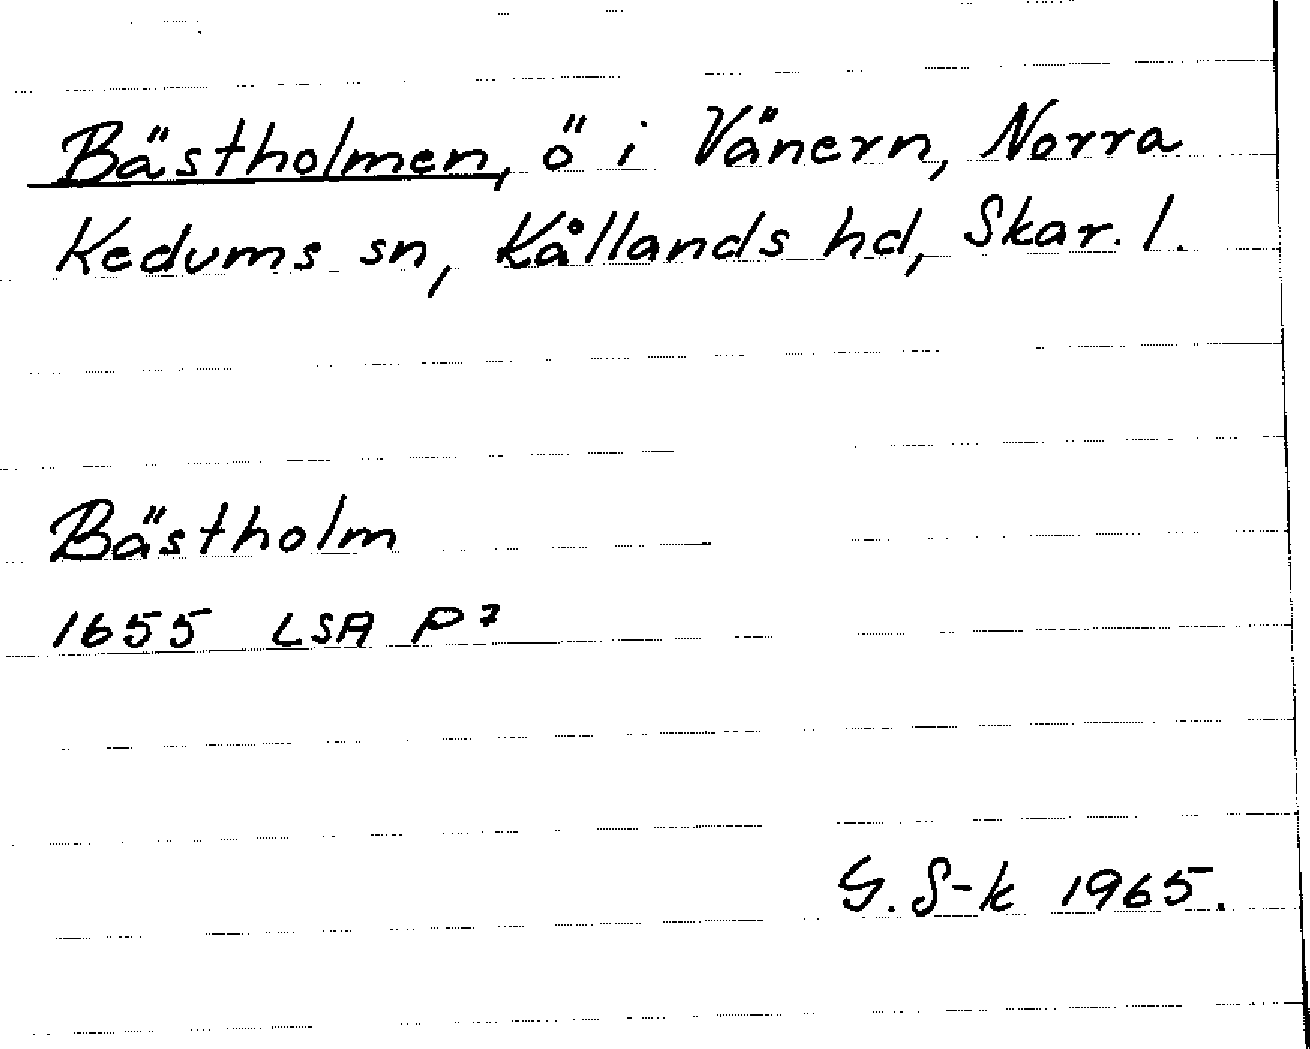 Bästholmen, ö i Vänern, Norra
Kedums sn, Kållands hd, Skar. l.
Bästholm
1655 LSA P⁷
G. S-k 1965.